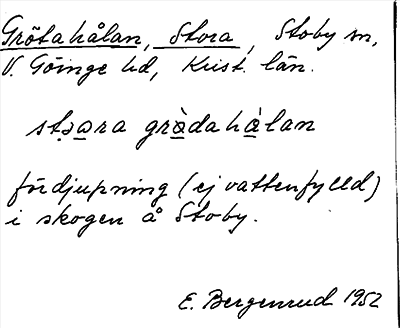 Grötahålan, Stora, Stoby sn,
V. Göinge hd, Krist. län.
stəara gràdahàlan
fördjupning (ej vattenfylld)
i skogen å Stoby.
E. Bergenrud 1952